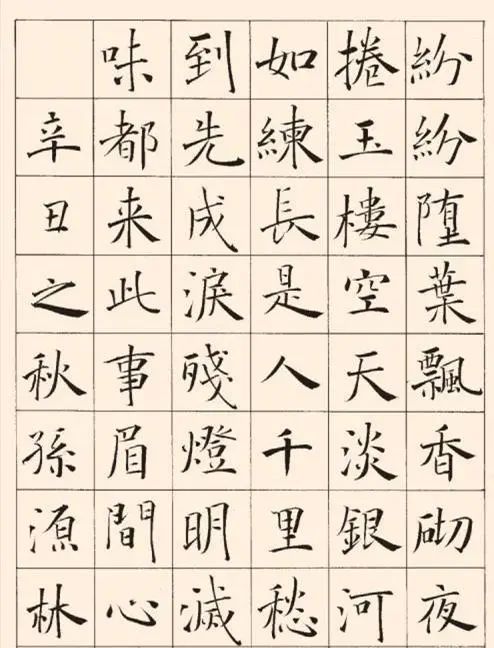 紛紛堕葉飄香砌夜
捲玉樓空天淡銀河
如練長是人千里愁
到先成淚殘燈明滅
味都来此事眉間心
辛丑之秋孫源林